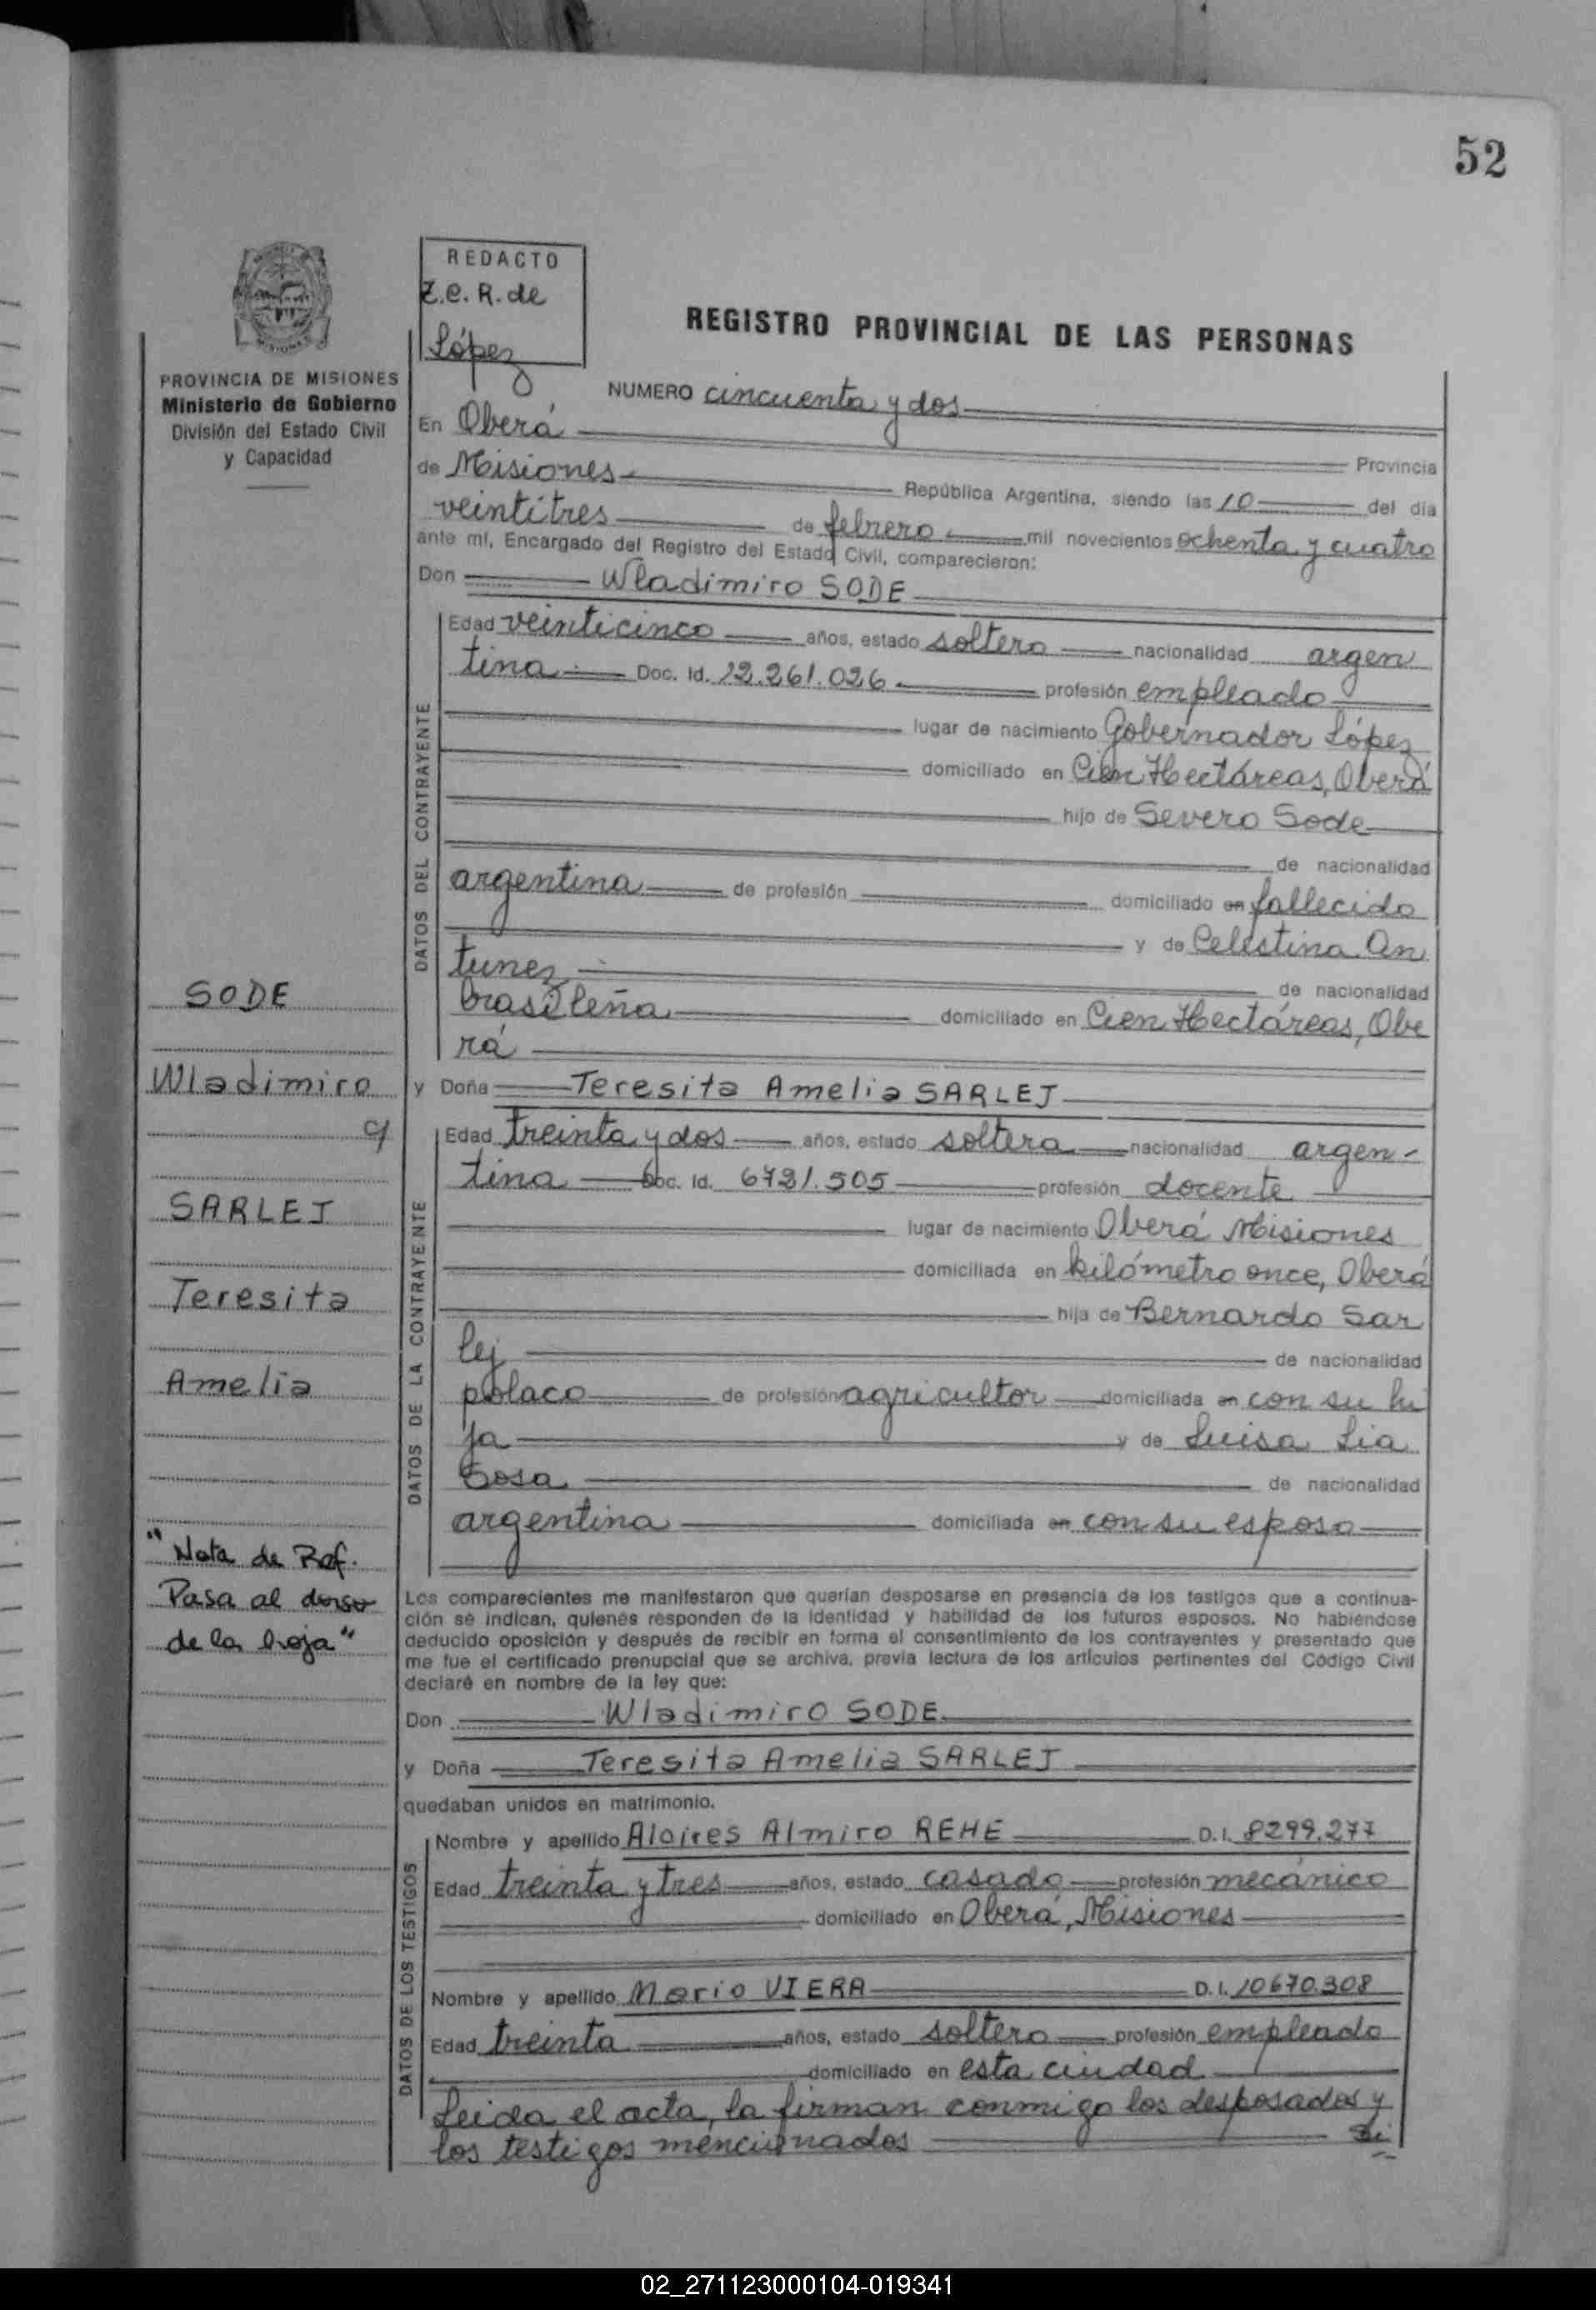 52
REDACTO
Z.C.R. de
López
REGISTRO PROVINCIAL DE LAS PERSONAS
PROVINCIA DE MISIONES
Ministerio de Gobierno
División del Estado Civil
y Capacidad
NUMERO cincuenta y dos
En Oberá
Provincia
de Misiones República Argentina, siendo las 10 del día
veintitres de febrero mil novecientos ochenta y cuatro
ante mí, Encargado del Registro del Estado Civil, comparecieron:
Don Wladimiro SODE
DATOS DEL CONTRAYENTE
Edad veinticinco años, estado soltero nacionalidad argen
tina Doc. Id. 12.261.026 profesión empleado
lugar de nacimiento Gobernador López
domiciliado en Cien Hectáreas, Oberá
hijo de Severo Sode
de nacionalidad
argentina de profesión domiciliado en fallecido
y de Celestina An
tunez de nacionalidad
brasileña domiciliado en Cien Hectáreas, Obe
rá
SODE
Wladimiro
y
SARLEJ
Teresita
Amelia
"Nota de Ref.
Pasa al dorso
de la hoja"
y Doña Teresita Amelia SARLEJ
DATOS DE LA CONTRAYENTE
Edad treinta y dos años, estado soltera nacionalidad argen-
tina Doc. Id. 6721.505 profesión docente
lugar de nacimiento Oberá Misiones
domiciliada en kilómetro once, Oberá
hija de Bernardo Sar
lej de nacionalidad
polaco de profesión agricultor domiciliada en con su hi
ja y de Luisa Lia
Sosa de nacionalidad
argentina domiciliada en con su esposo
Los comparecientes me manifestaron que querían desposarse en presencia de los testigos que a continua-
ción se indican, quienes responden de la identidad y habilidad de los futuros esposos. No habiéndose
deducido oposición y después de recibir en forma el consentimiento de los contrayentes y presentado que
me fue el certificado prenupcial que se archiva, previa lectura de los artículos pertinentes del Código Civil
declaré en nombre de la ley que:
Don Wladimiro SODE
y Doña Teresita Amelia SARLEJ
quedaban unidos en matrimonio.
DATOS DE LOS TESTIGOS
Nombre y apellido Aloires Almiro REHE D.I. 8299.277
Edad treinta y tres años, estado casado profesión mecánico
domiciliado en Oberá, Misiones
Nombre y apellido Mario VIERA D.I. 10670.308
Edad treinta años, estado soltero profesión empleado
domiciliado en esta ciudad
Leida el acta, la firman conmigo los desposados y
los testigos mencionados
02_271123000104-019341